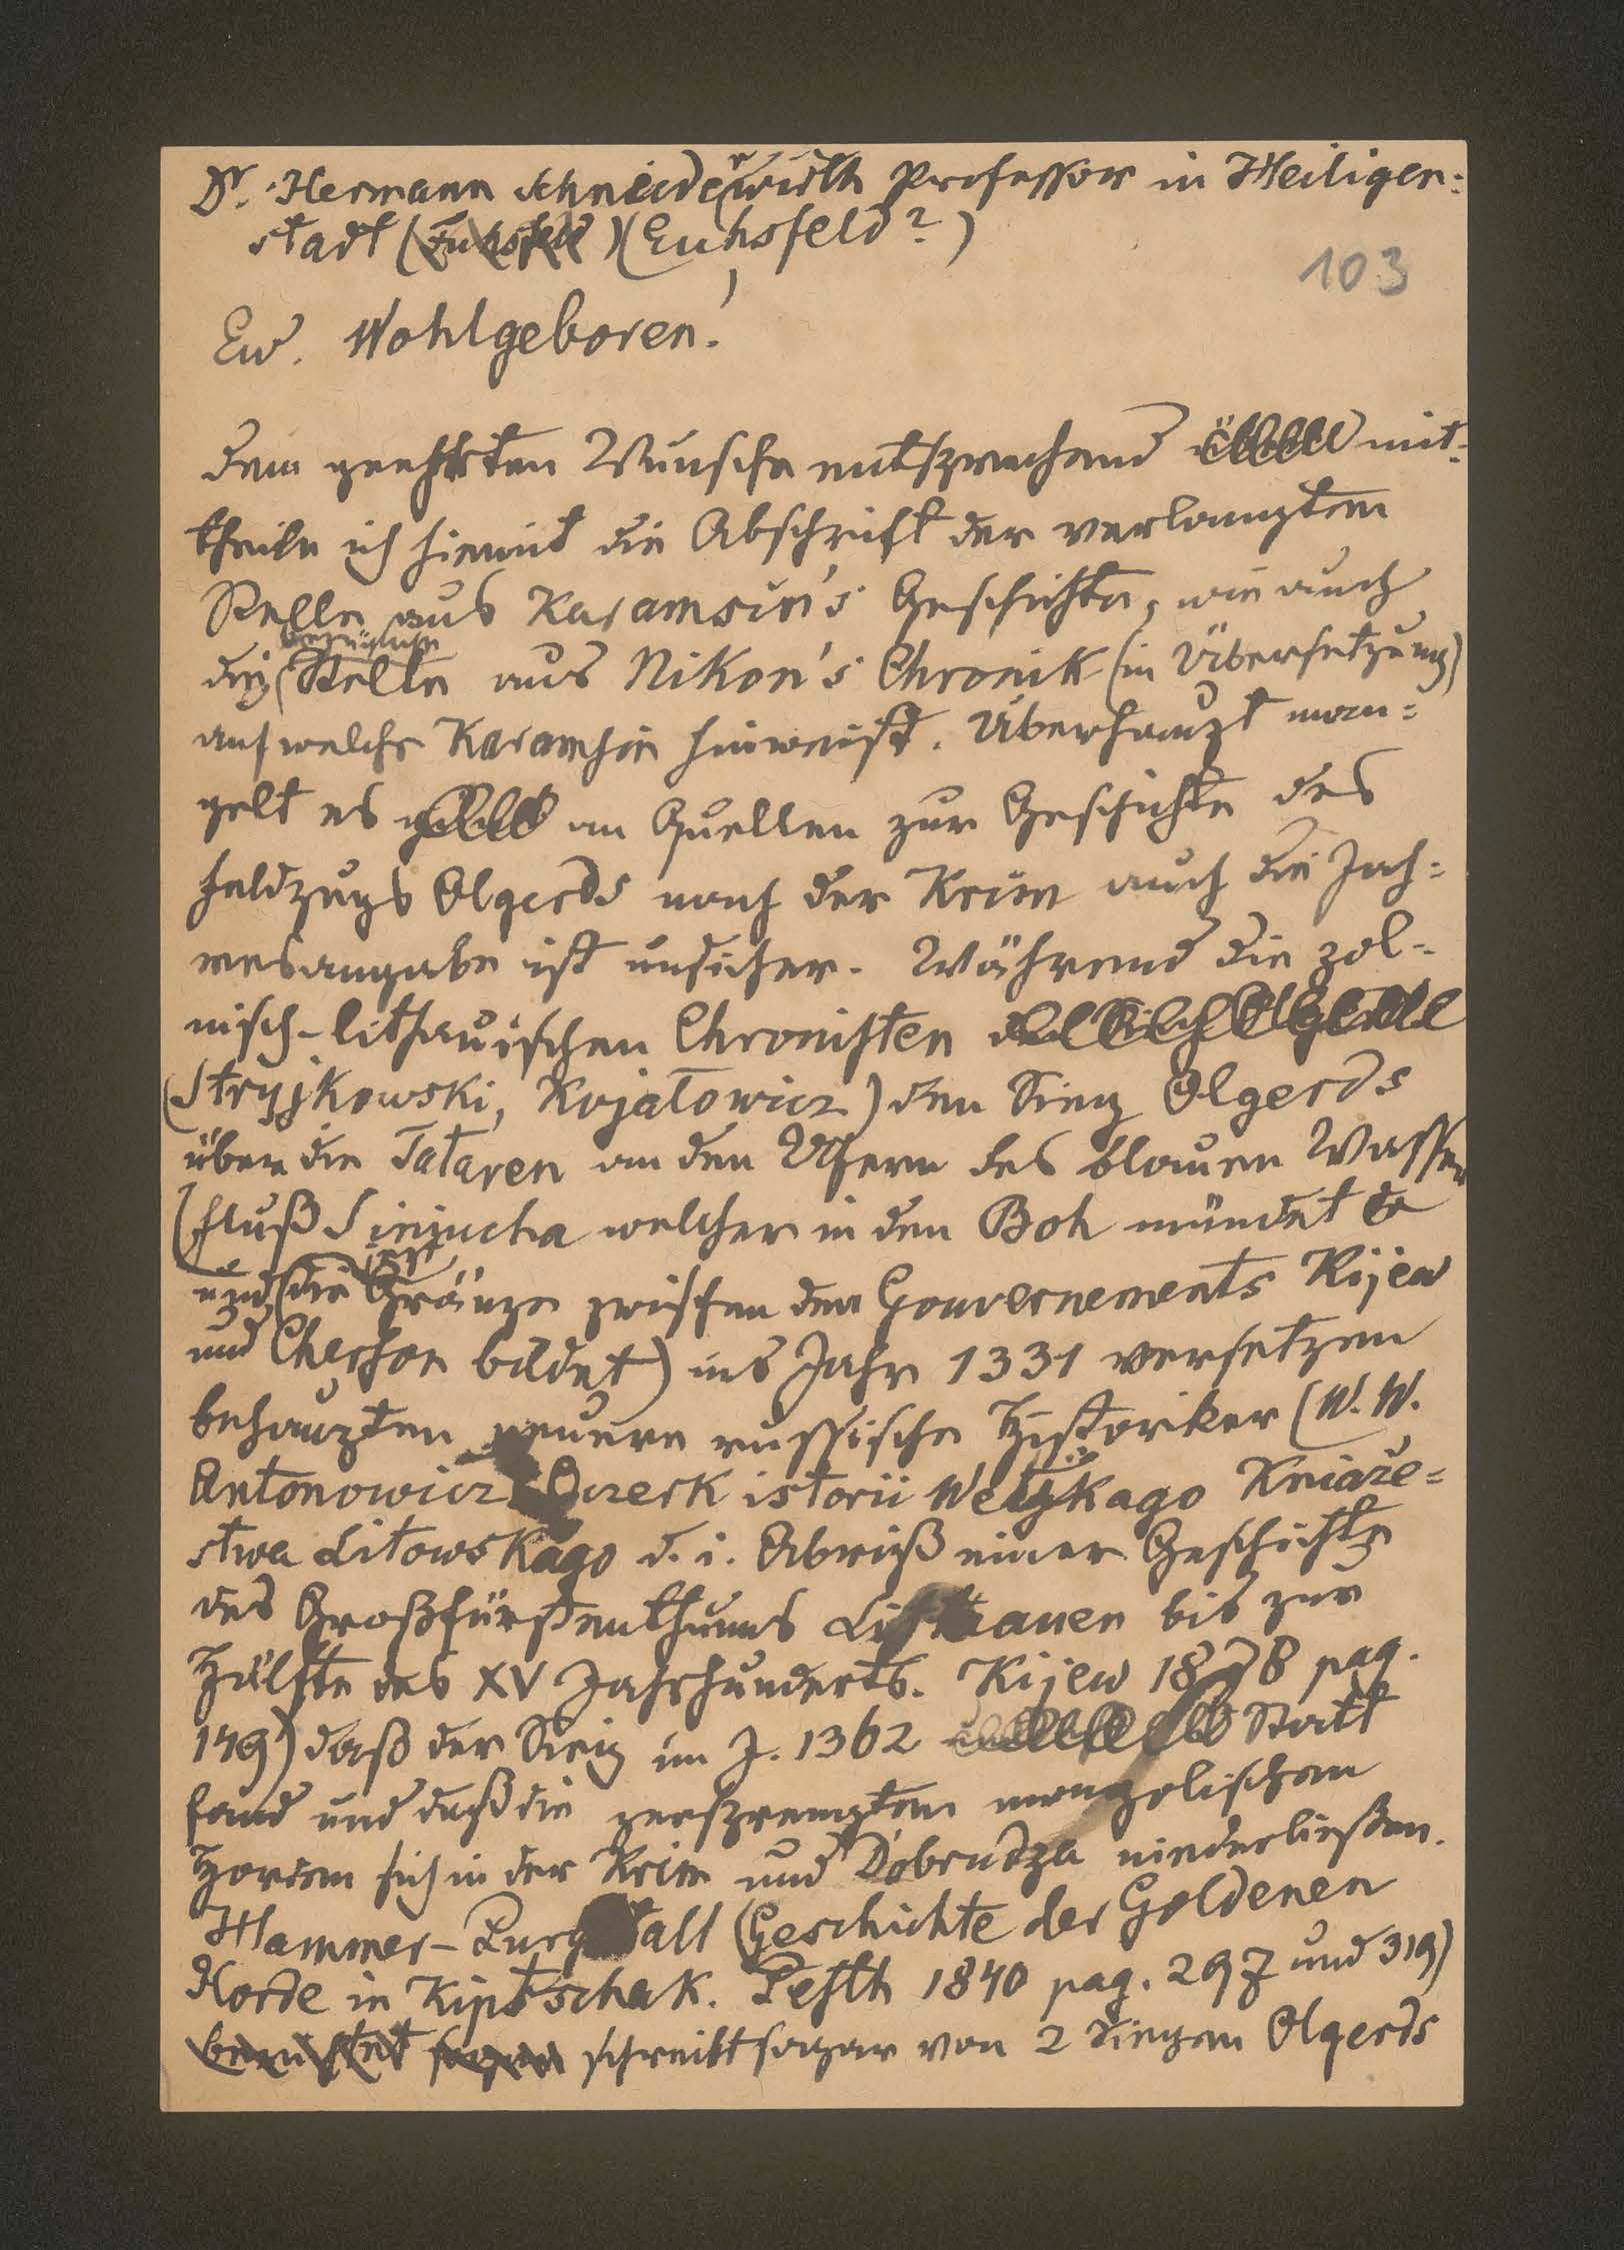 Dr. Hermann Schneiderwirth Professor in Heiligen-
stadt (Euhsfeld) (Euhsfeld?)
103
Ew. Wohlgeboren!
dem geehrten Wunsche entsprechend mit-
theile ich hiemit die Abschrift der verlangten
Stelle aus Karamsin's Geschichte, wie auch
die bezügliche Stelle aus Nikon's Chronik (in Übersetzung)
auf welche Karamsin hinweist. Überhaupt man-
gelt es an Quellen zur Geschichte des
Feldzugs Olgerds nach der Krim auch die Jah-
resangabe ist unsicher. Während die pol-
nisch-lithauischen Chronisten
(Stryjkowski, Kojałowicz) den Sieg Olgerds
über die Tataren an den Ufern des blauen Wassers
(Fluß Siniucha welcher in den Boh mündet
und jetzt die Gränze zwischen den Gouvernements Kijew
und Cherson bildet) ins Jahr 1331 versetzen
behaupten neuere russische Historiker (W. W.
Antonowicz Oczerk istorii Welikago Kniaże-
stwa Litowskago d. i. Abriß einer Geschichte
des Großfürstenthums Litthauen bis zur
Hälfte des XV Jahrhunderts. Kijew 1878 pag.
149) daß der Sieg im J. 1362 Statt
fand und daß die zersprengten mongolischen
Horden sich in der Krim und Dobrudza niederließen.
Hammer-Purgstall (Geschichte der Goldenen
Horde in Kiptschak. Pesth 1840 pag. 297 und 319)
berichtet sogar schreibt sogar von 2 Siegen Olgerds